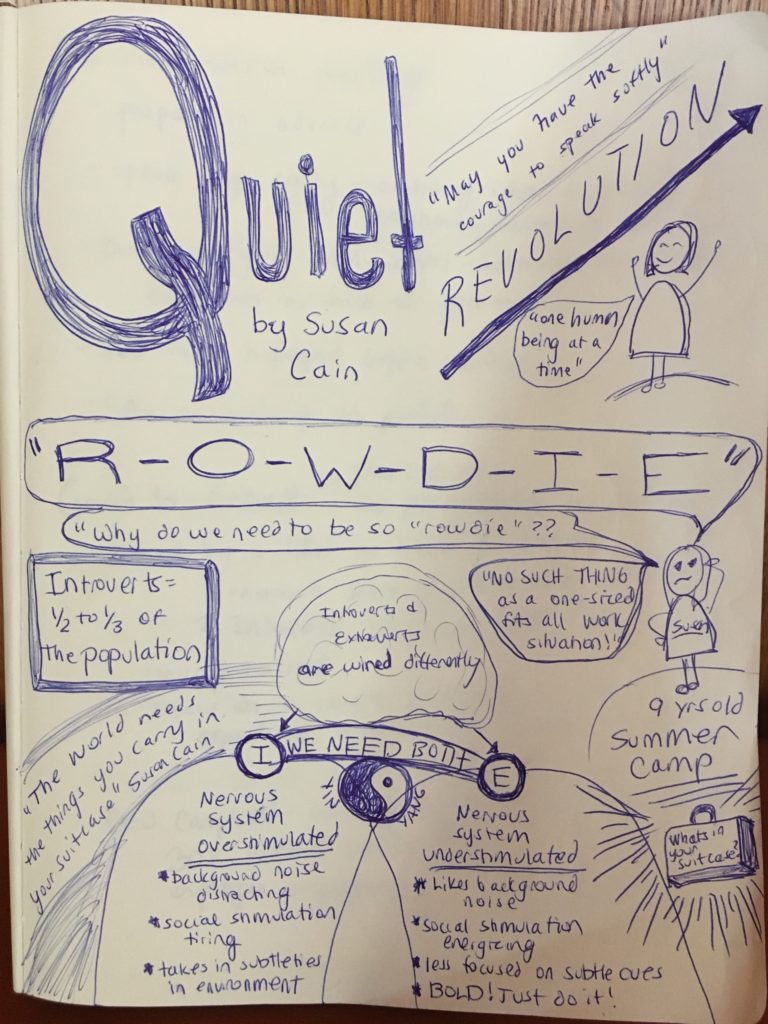 Quiet
by Susan
Cain
"May you have the
courage to speak softly"
REVOLUTION
"one human
being at a
time"
"R-O-W-D-I-E"
"Why do we need to be so "rowdie"??
Introverts=
1/2 to 1/3 of
the population
Introverts &
Extraverts
are wired differently
"NO SUCH THING
as a one-sized
fits all work
situation!"
Susan
9 yrs old
Summer
Camp
"The world needs
the things you carry in
your suitcase" Susan Cain
I WE NEED BOTH E
YIN YANG
Nervous
system
overstimulated
*background noise
distracting
*social stimulation
tiring
*takes in subtleties
in environment
Nervous
system
understimulated
*Likes background
noise
*social stimulation
energizing
*less focused on subtle cues
*BOLD! Just do it!
Whats in
your
suitcase?